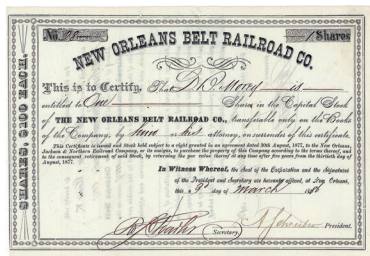 No. 28 1 Shares
NEW ORLEANS BELT RAILROAD CO.
SHARES, $100 EACH.
This is to Certify, That D. P. Morey is
entitled to One Shares in the Capital Stock
of THE NEW ORLEANS BELT RAILROAD CO., transferable only on the Books
of the Company, by him or his attorney, on surrender of this certificate.
This Certificate is issued and Stock held subject to a right granted in an agreement dated 30th August, 1877, to the New Orleans,
Jackson & Northern Railroad Company, or its assigns, to purchase the property of this Company according to the terms thereof, and
to the consequent retirement of said Stock, by returning the par value thereof at any time after five years from the thirtieth day of
August, 1877.
In Witness Whereof, the Seal of the Corporation and the Signatures
of the President and Secretary are hereunto affixed, at New Orleans,
this day of March
Secretary. President.